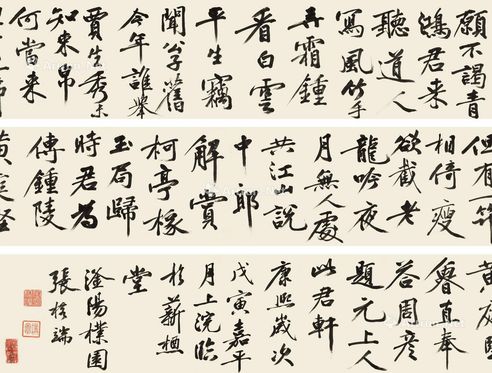 願不謁青
鴻君來
聽道人
寫風竹手
弄霜鍾
看白雲
平生竊
聞公舊
今年誰舉
賈生秀未
知束帛
何當來
但有一節
相倚瘦
欲截老
龍吟夜
月無人處
共江山說
中郎
解賞
柯亭椽
玉局歸
時君為
傳鍾陵
黃庭堅
黃庭堅
魯直奉
答周彥
題元上人
此君軒
康熙歲次
戊寅嘉平
月上浣臨
於薪槱
堂
滏陽樸園
張榕端